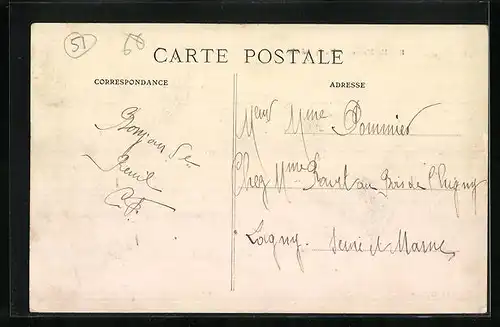 51
60
CARTE POSTALE
CORRESPONDANCE
ADRESSE
Bonjour de
Reuil
Mme Pommier
Chez Mme
au Bois de
Lagny. Seine et Marne